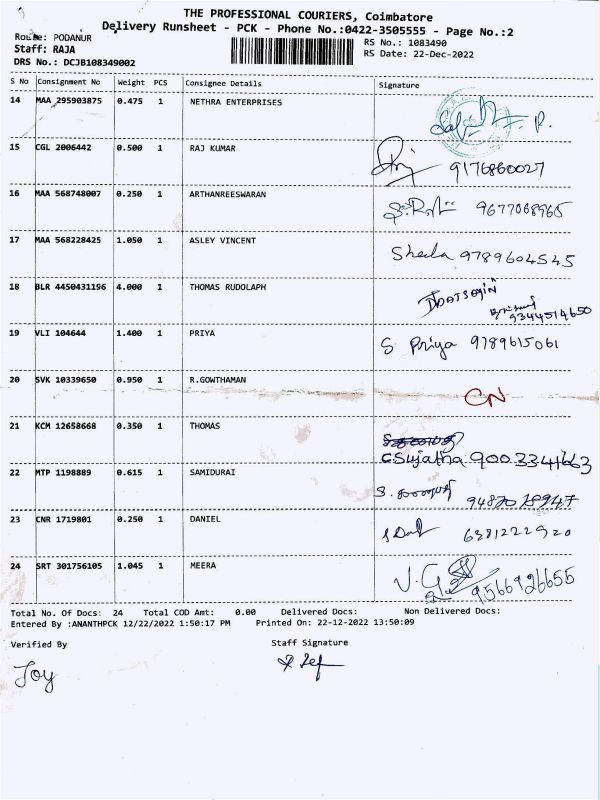 THE PROFESSIONAL COURIERS, Coimbatore
Delivery Runsheet - PCK - Phone No.:0422-3505555 - Page No.:2
Route: PODANUR
Staff: RAJA
DRS No.: DCJB108349002
RS No.: 1083490
RS Date: 22-Dec-2022
S No Consignment No Weight PCS Consignee Details Signature
14 MAA 295903875 0.475 1 NETHRA ENTERPRISES
15 CGL 2006442 0.500 1 RAJ KUMAR 9176860027
16 MAA 568748007 0.250 1 ARTHANREESWARAN 9677068965
17 MAA 568228425 1.050 1 ASLEY VINCENT Sheela 9789604545
18 BLR 4450431196 4.000 1 THOMAS RUDOLAPH 9344514650
19 VLI 104644 1.400 1 PRIYA S Priya 9789615061
20 SVK 10339650 0.950 1 R.GOWTHAMAN CN
21 KCM 12658668 0.350 1 THOMAS C Sujatha 9003341663
22 MTP 1198889 0.615 1 SAMIDURAI
23 CNR 1719801 0.250 1 DANIEL 6381222920
24 SRT 301756105 1.045 1 MEERA 9566926655
Total No. Of Docs: 24 Total COD Amt: 0.00 Delivered Docs: Non Delivered Docs:
Entered By :ANANTHPCK 12/22/2022 1:50:17 PM Printed On: 22-12-2022 13:50:09
Verified By Staff Signature
Joy